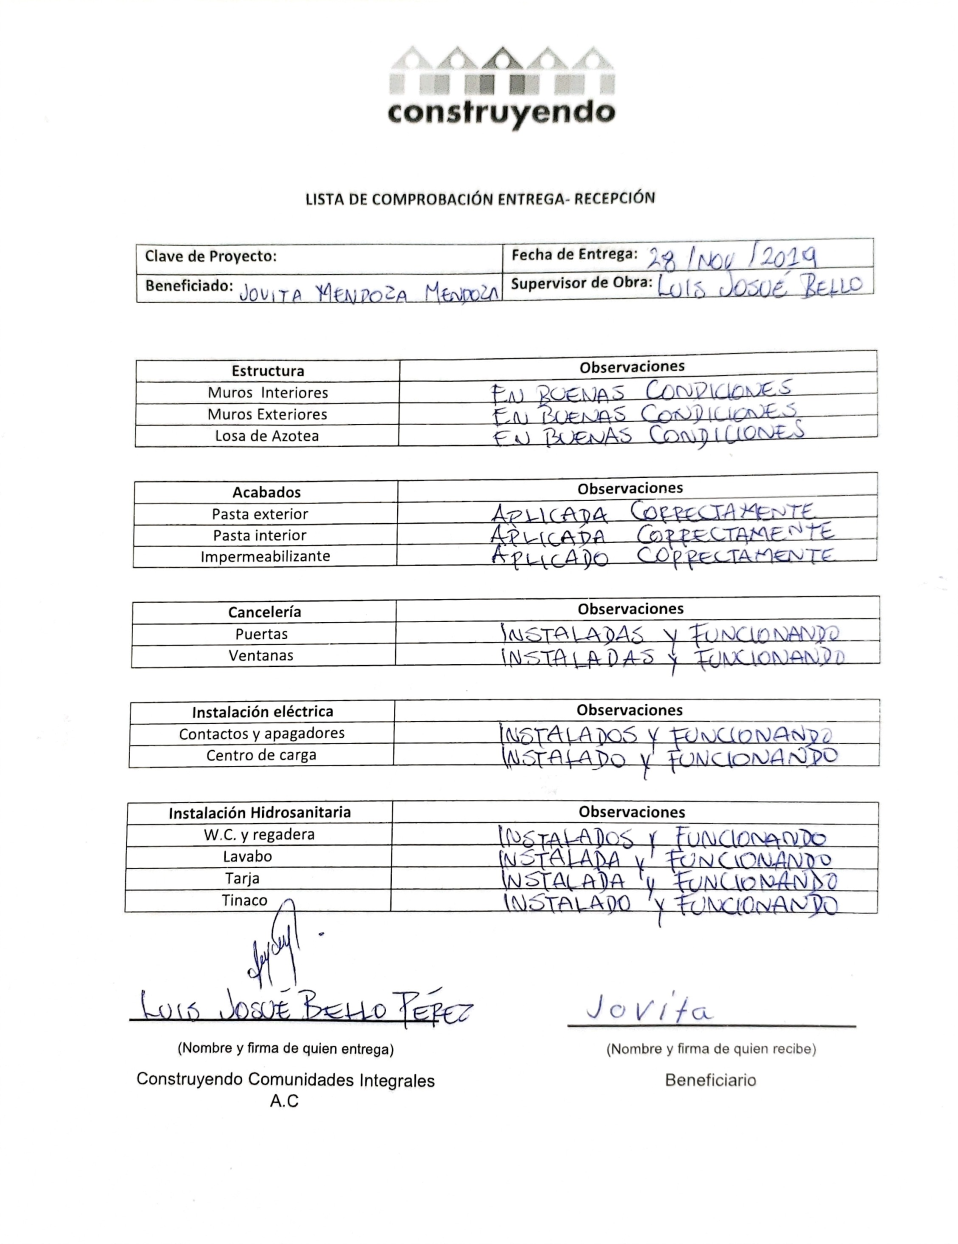 construyendo
LISTA DE COMPROBACIÓN ENTREGA- RECEPCIÓN
Clave de Proyecto: Fecha de Entrega: 28 / NOV / 2019
Beneficiado: JOVITA MENDOZA MENDOZA Supervisor de Obra: LUIS JOSUÉ BELLO
Estructura Observaciones
Muros Interiores EN BUENAS CONDICIONES
Muros Exteriores EN BUENAS CONDICIONES
Losa de Azotea EN BUENAS CONDICIONES
Acabados Observaciones
Pasta exterior APLICADA CORRECTAMENTE
Pasta interior APLICADA CORRECTAMENTE
Impermeabilizante APLICADO CORRECTAMENTE
Cancelería Observaciones
Puertas INSTALADAS Y FUNCIONANDO
Ventanas INSTALADAS Y FUNCIONANDO
Instalación eléctrica Observaciones
Contactos y apagadores INSTALADOS Y FUNCIONANDO
Centro de carga INSTALADO Y FUNCIONANDO
Instalación Hidrosanitaria Observaciones
W.C. y regadera INSTALADOS Y FUNCIONANDO
Lavabo INSTALADA Y FUNCIONANDO
Tarja INSTALADA Y FUNCIONANDO
Tinaco INSTALADO Y FUNCIONANDO
LUIS JOSUÉ BELLO PÉREZ Jovita
(Nombre y firma de quien entrega) (Nombre y firma de quien recibe)
Construyendo Comunidades Integrales Beneficiario
A.C